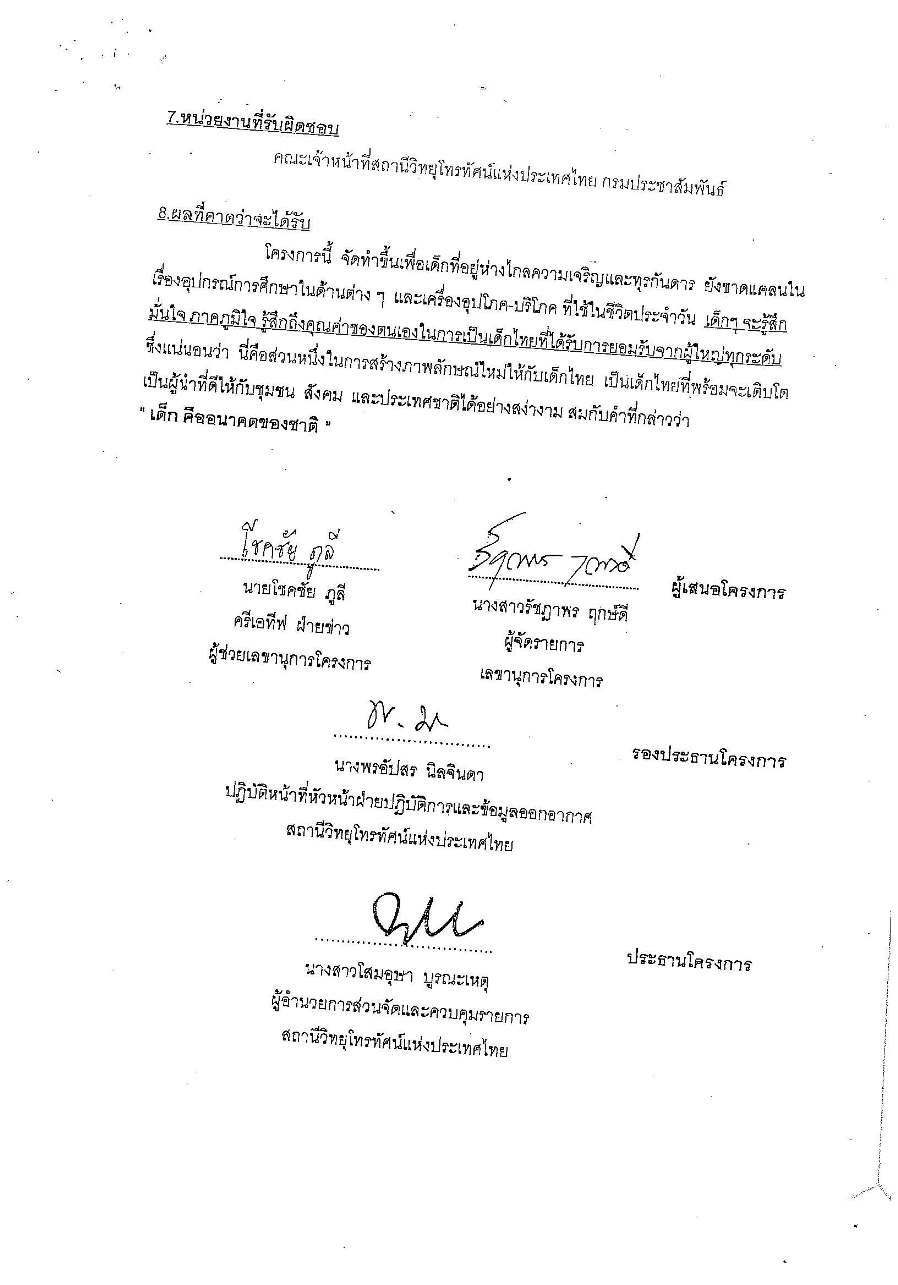 7.หน่วยงานที่รับผิดชอบ
คณะเจ้าหน้าที่สถานีวิทยุโทรทัศน์แห่งประเทศไทย กรมประชาสัมพันธ์
8.ผลที่คาดว่าจะได้รับ
โครงการนี้ จัดทำขึ้นเพื่อเด็กที่อยู่ห่างไกลความเจริญและทุรกันดาร ยังขาดแคลนใน
เรื่องอุปกรณ์การศึกษาในด้านต่าง ๆ และเครื่องอุปโภค-บริโภค ที่ใช้ในชีวิตประจำวัน เด็กๆ จะรู้สึก
มั่นใจ ภาคภูมิใจ รู้สึกถึงคุณค่าของตนเองในการเป็นเด็กไทยที่ได้รับการยอมรับจากผู้ใหญ่ทุกระดับ
ซึ่งแน่นอนว่า นี่คือส่วนหนึ่งในการสร้างภาพลักษณ์ใหม่ให้กับเด็กไทย เป็นเด็กไทยที่พร้อมจะเติบโต
เป็นผู้นำที่ดีให้กับชุมชน สังคม และประเทศชาติได้อย่างสง่างาม สมกับคำที่กล่าวว่า
" เด็ก คืออนาคตของชาติ "
โชคชัย ภูลี
นายโชคชัย ภูลี
ครีเอทีฟ ฝ่ายข่าว
ผู้ช่วยเลขานุการโครงการ
ผู้เสนอโครงการ
นางสาวรัชฎาพร ฤกษ์ดี
ผู้จัดรายการ
เลขานุการโครงการ
รองประธานโครงการ
นางพรอัปสร นิลจินดา
ปฏิบัติหน้าที่หัวหน้าฝ่ายปฏิบัติการและข้อมูลออกอากาศ
สถานีวิทยุโทรทัศน์แห่งประเทศไทย
ประธานโครงการ
นางสาวโสมอุษา บูรณะเหตุ
ผู้อำนวยการส่วนจัดและควบคุมรายการ
สถานีวิทยุโทรทัศน์แห่งประเทศไทย